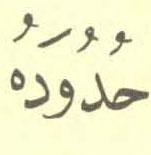 حُدُودَهُ